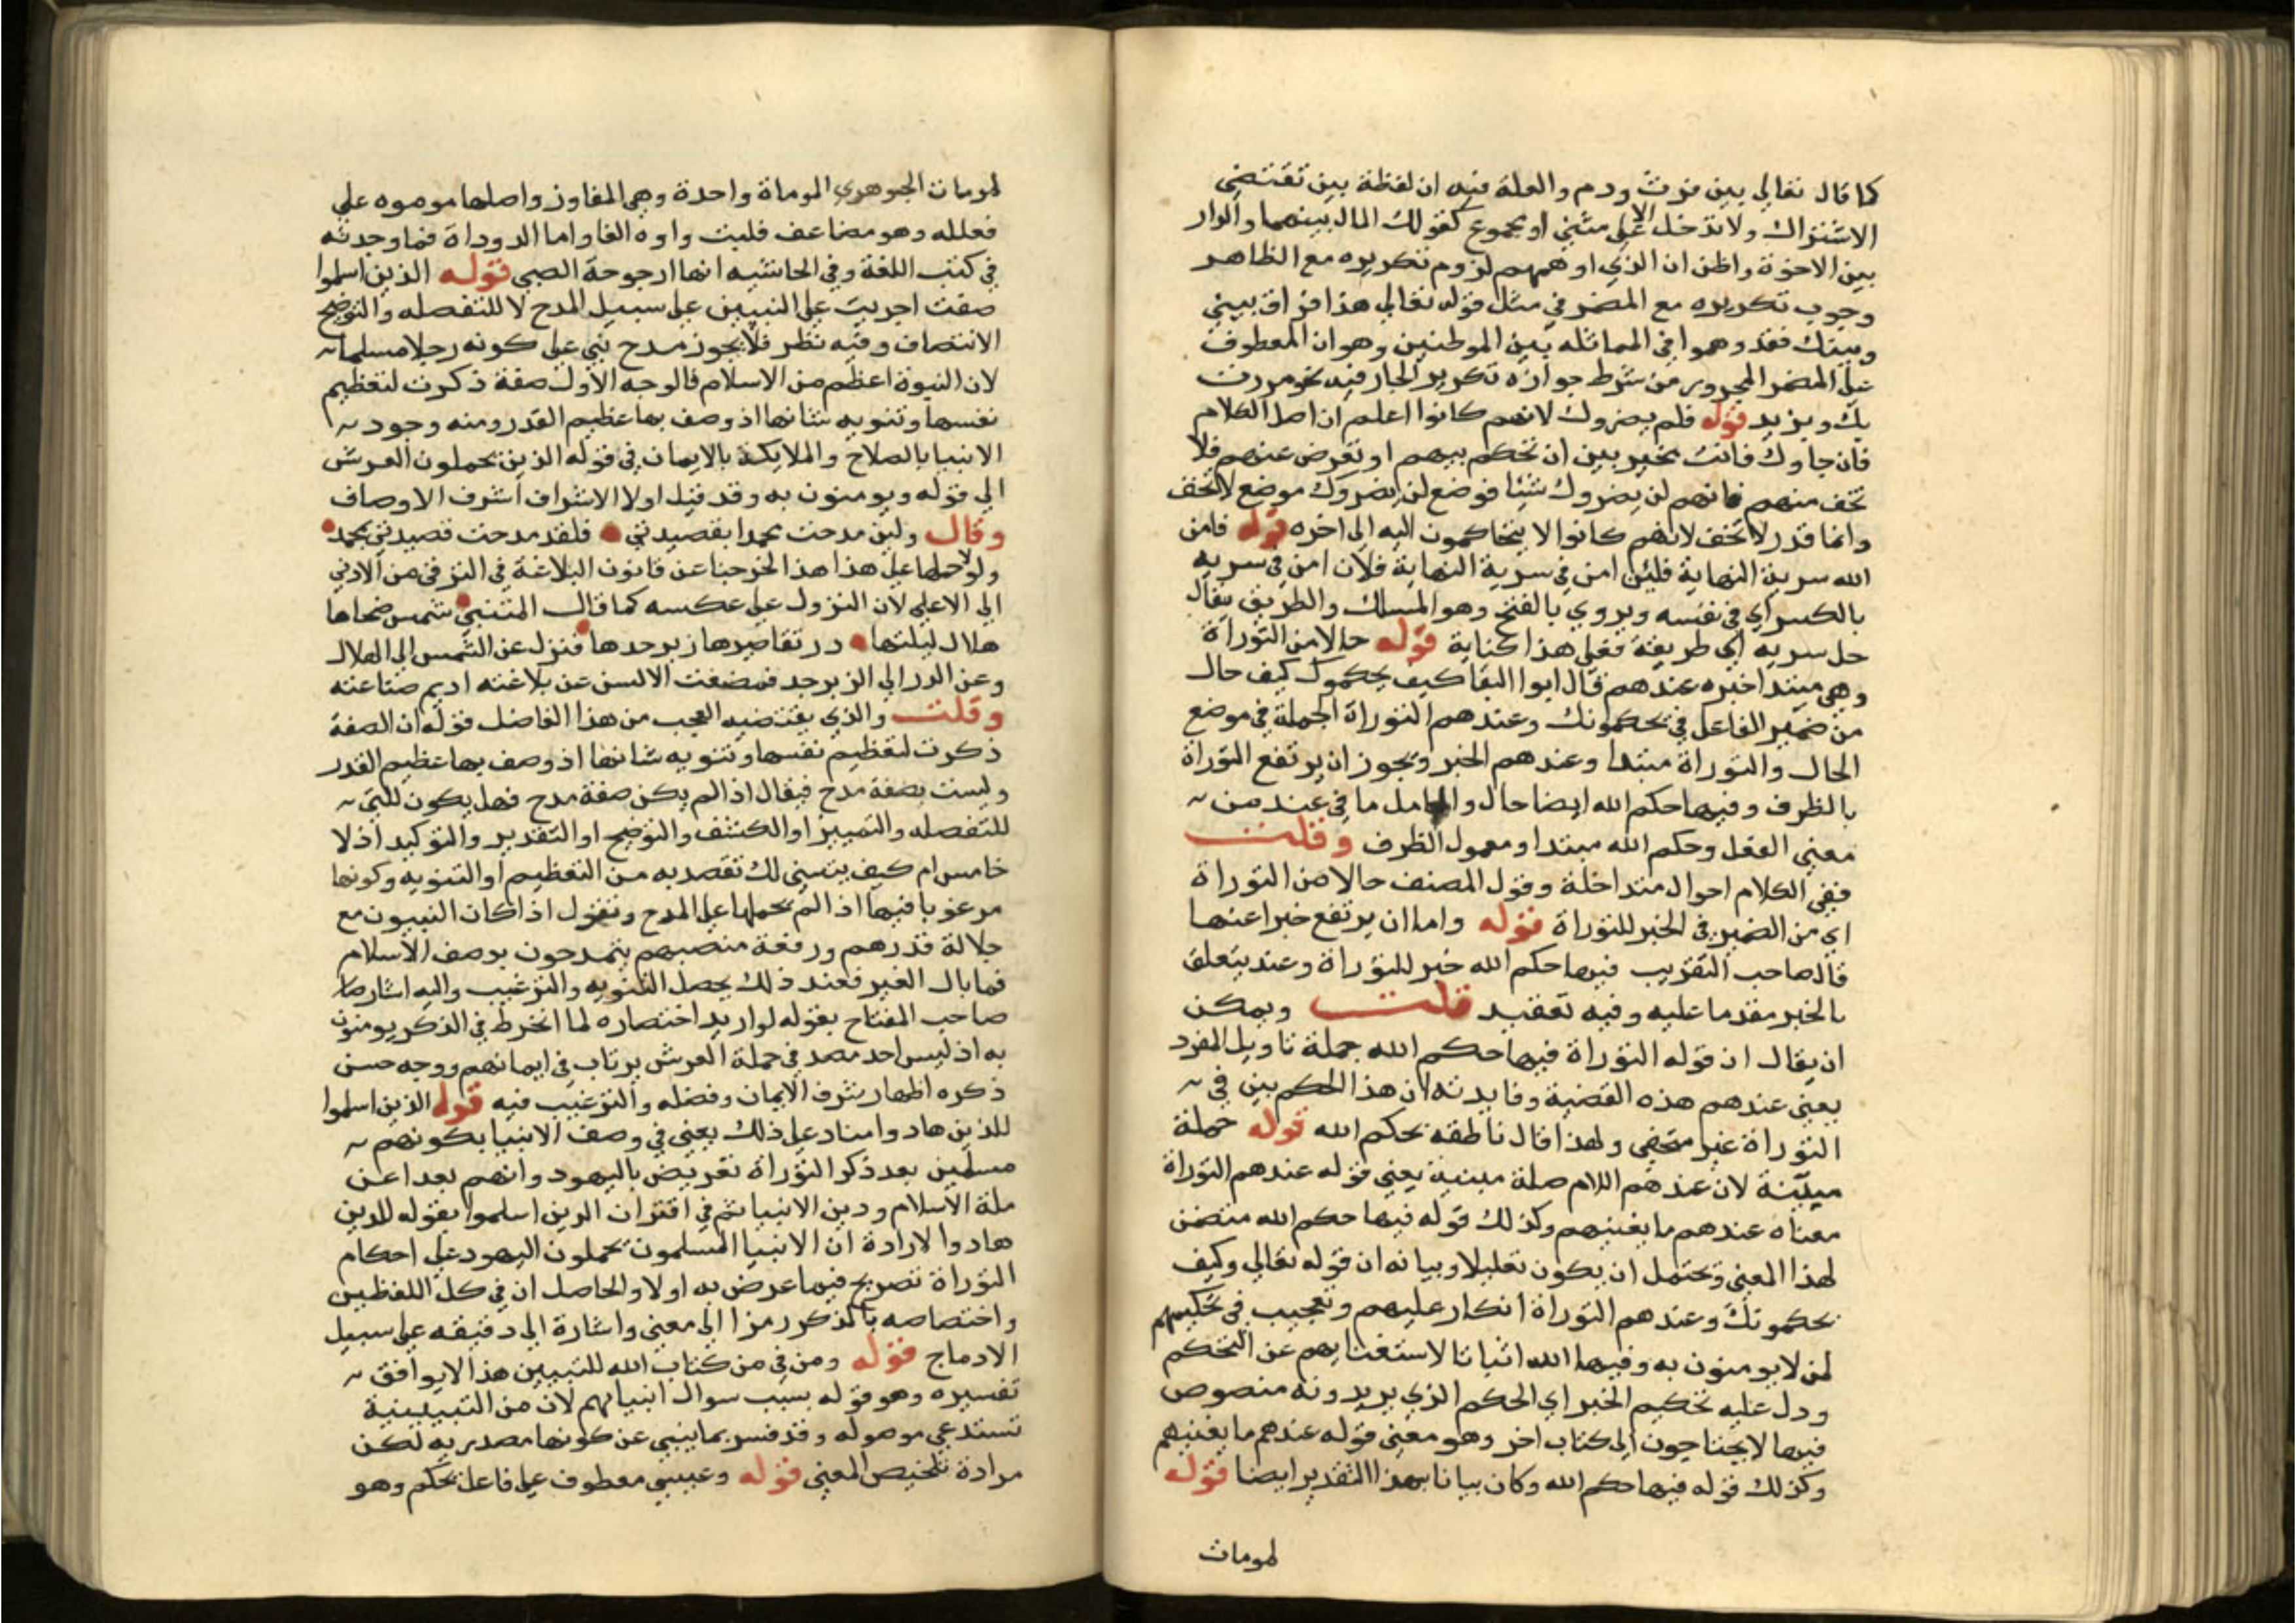 كما قال تعالي بين فرث ودم والعلة فيه ان لفظة بين تقتضي
الاشتراك ولا تدخل الا علي مثني او مجموع كقولك المال بينهما والدار
بين الاخوة واظن ان الذي اوهمهم لزوم تكريره مع الظاهر
وجوب تكريره مع المضمر في مثل قوله تعالي هذا فراق بيني
وبينك فقد وهموا في المماثله بين الموطنين وهو ان المعطوف
علي المضمر المجرور من شرط جوازه تكرير الجار فيه نحو مررت
بك وبزيد قوله فلم يضروك لانهم كانوا اعلم ان اصل الكلام
فان جاوك فانت مخير بين ان تحكم بينهم او تعرض عنهم فلا
تخف منهم فانهم لن يضروك شيئا فوضع لن يضروك موضع لا تخف
وانما قدر لا تخف لانهم كانوا لا يتحاكمون اليه الي اخره قوله فامن
الله سربه النهاية فلان امن في سربه
بالكسر اي في نفسه ويروي بالفتح وهو المسلك والطريق يقال
خل سربه اي طريقه فعلي هذا كناية قوله حالا من التوراة
وهي مبتدا خبره عندهم قال ابوا البقا كيف يحكموك كيف حال
من ضمير الفاعل في يحكمونك وعندهم التوراة الجملة في موضع
الحال والتوراة مبتدا وعندهم الخبر ويجوز ان يرتفع التوراة
بالظرف وفيها حكم الله ايضا حال والعامل ما في عند من
معني الفعل وحكم الله مبتدا او معمول الظرف وقلت
ففي الكلام احوال متداخلة وقول المصنف حالا من التوراة
اي من الضمير في الخبر للتوراة قوله واما ان يرتفع خبرا عنها
قال صاحب التقريب فيها حكم الله خبر للتوراة وعند يتعلق
بالخبر مقدما عليه وفيه تعقيد قلت ويمكن
ان يقال ان قوله التوراة فيها حكم الله جملة تاويل المفرد
يعني عندهم هذه القضية وفايدته ان هذا الحكم بين في
التوراة غير مخفي ولهذا قال ناطقه بحكم الله قوله جملة
مبينة لان عندهم اللام صلة مبنية يعني قوله عندهم التوراة
معناه عندهم ما يغنيهم وكذلك قوله فيها حكم الله متضمن
لهذا المعني ويحتمل ان يكون تعليلا وبيانه ان قوله تعالي وكيف
يحكمونك وعندهم التوراة انكار عليهم وتعجيب في تحكيمهم
لمن لا يومنون به وفيها الله اثباتا لاستغنايهم عن التحكم
ودل عليه تحكيم الخبر اي الحكم الذي يريدونه منصوص
فيها لا يحتاجون الي كتاب اخر وهو معني قوله عندهم ما يغنيهم
وكذلك قوله فيها حكم الله وكان بيانا بهذا التقدير ايضا قوله
لموماث
لموماث الجوهري الموماة واحدة وهي المفاوز واصلها موموه علي
فعلله وهو مضاعف قلبت واوه الفا واما الدوداة فما وجدته
في كتب اللغة وفي الحاشيه انها ارجوحة الصبي قوله الذين اسلموا
صفت اجريت علي النبيين علي سبيل المدح لا للتفصله والتوضيح
الانتصاف وفيه نظر فلا يجوز مدح نبي علي كونه رجلا مسلما
لان النبوة اعظم من الاسلام فالوجه الاول صفة ذكرت لتعظيم
نفسها وتنويه شانها اذ وصف بها عظيم القدر ومنه وجود
الانبيا بالصلاح والملايكة بالايمان في قوله الذين يحملون العرش
الي قوله ويومنون به وقد قيل اولا الاشراف اشرف الاوصاف
وقال ولين مدحت محمدا بقصيدتي فلقد مدحت قصيدتي بمحمد
ولو حملها علي هذا هذا لخرجنا عن قانون البلاغة في الترقي من الادني
الي الاعلي لان النزول علي عكسه كما قال المتنبي شمس ضحاها
هلال ليلتها در تقاصيرها زبرجدها فنزل عن الشمس الي الهلال
وعن الدر الي الزبرجد فمضغت الالسن عن بلاغته اديم صناعته
وقلت والذي يقتضيه العجب من هذا الفاضل قوله ان الصفة
ذكرت لتعظيم نفسها وتنويه شانها اذ وصف بها عظيم القدر
وليست بصفة مدح فيقال اذا لم يكن صفة مدح فهل يكون للنبي
للتفصله والتمييز او الكشف والتوضيح او التقدير والتوكيد اذ لا
خامس ام كيف يتسني لك تقصد به من التعظيم او التنويه وكونها
مرغوبا فيها اذا لم تحملها علي المدح ونقول اذا كان النبيون مع
جلالة قدرهم ورفعة منصبهم يتمدحون بوصف الاسلام
فما بال الغير فعند ذلك يحصل التنويه والترغيب واليه اشار
صاحب المفتاح بقوله لو اريد اختصاره لما انخرط في الذكر يومنون
به اذ ليس احد مصد في حملة العرش يرتاب في ايمانهم ووجه حسن
ذكره اظهار شرف الايمان وفضله والترغيب فيه قوله الذين اسلموا
للذين هادوا مناد علي ذلك يعني في وصف الانبيا بكونهم
مسلمين بعد ذكر التوراة تعريض باليهود وانهم بعدا عن
ملة الاسلام ودين الانبيا ثم في اقتران الذين اسلموا بقوله للذين
هادوا لارادة ان الانبيا المسلمون يحملون اليهود علي احكام
التوراة تصريح فيما عرض به اولا والحاصل ان في كل اللفظين
واختصاصه بالذكر رمزا الي معني واشارة الي دقيقه علي سبيل
الادماج قوله ومن في من كتاب الله للتبيين هذا لا يوافق
تفسيره وهو قوله بسبب سوال انبيايهم لان من التبيينية
تستدعي موصوله وقد فسر بما ينبي عن كونها مصدريه لكن
مرادة تلخيص المعني قوله وعيسي معطوف علي فاعل تحكم وهو